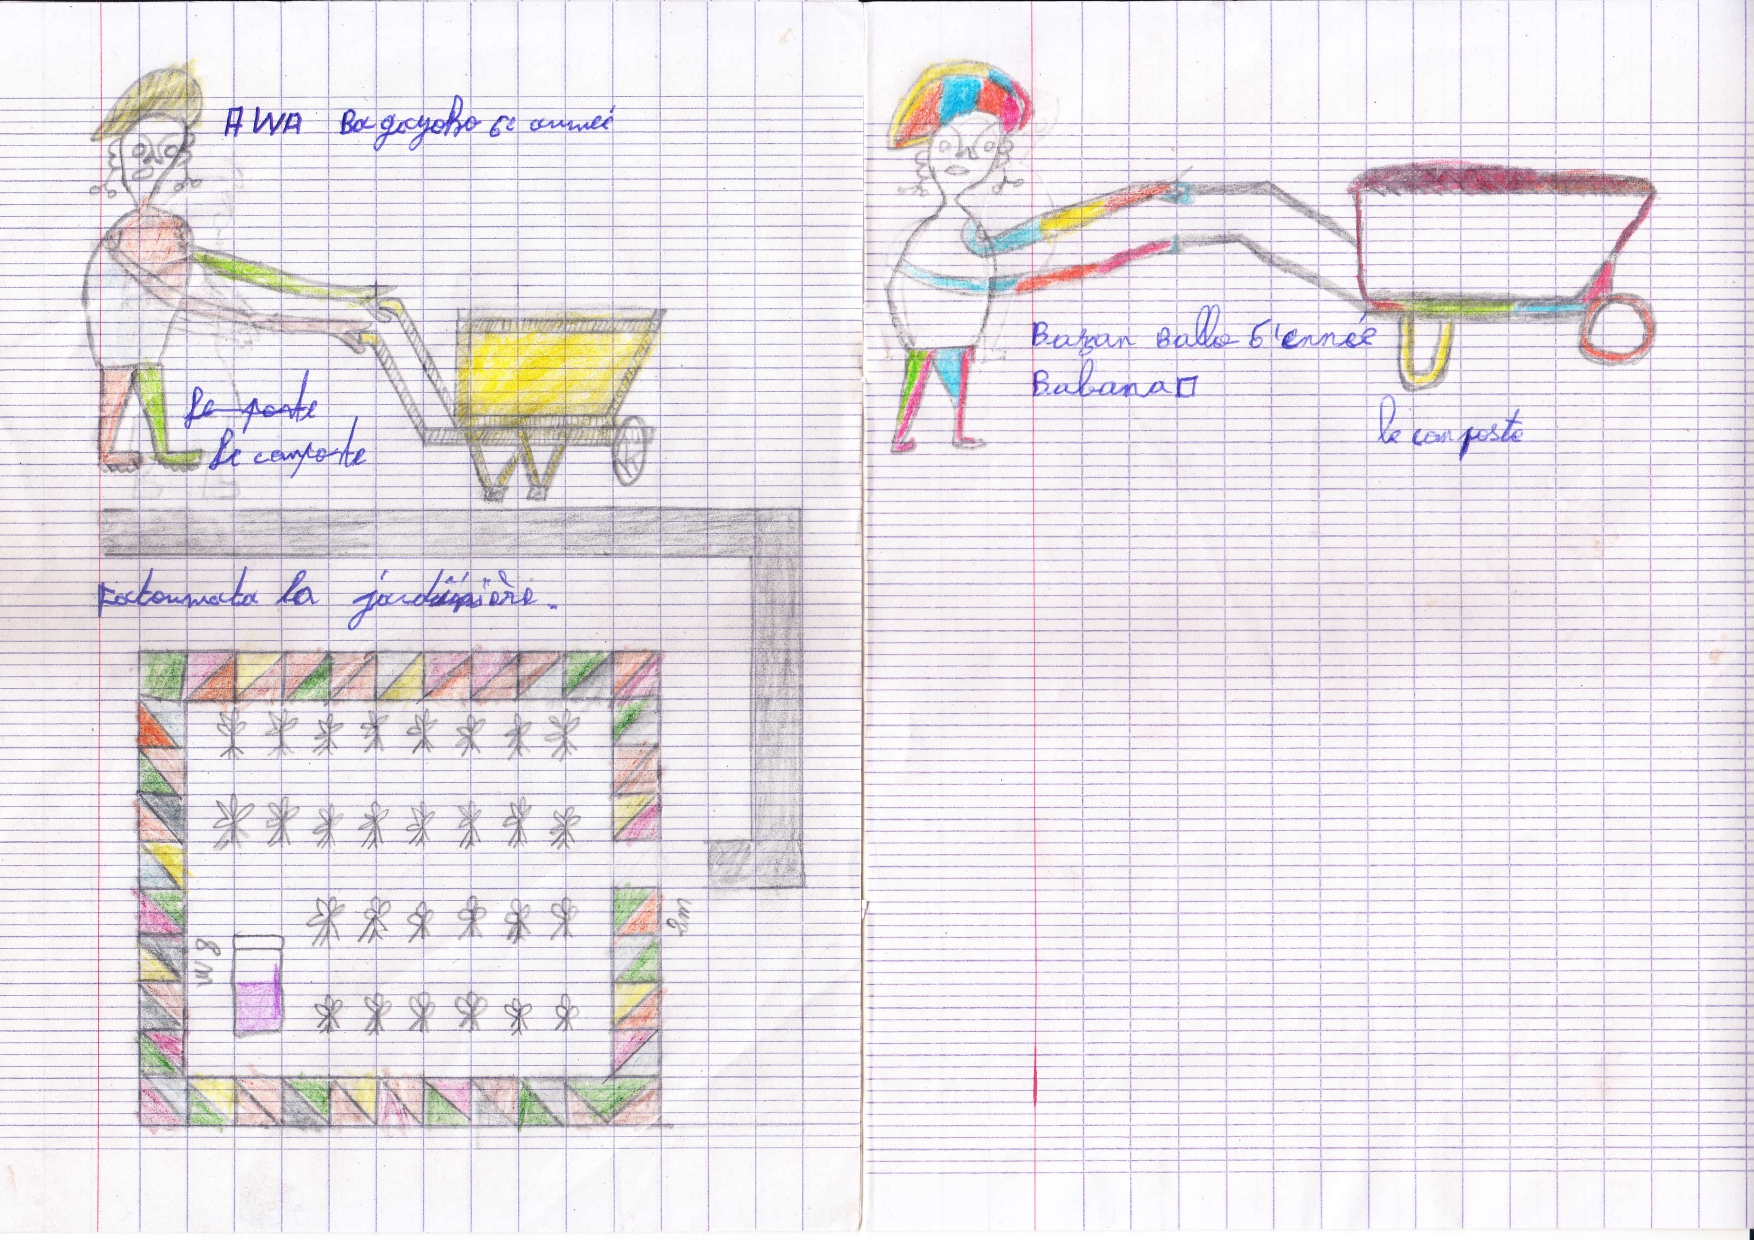 AWA Bagayoko 6e année
Le poste
Le composte
Fatoumata la jardinière.
Bazan Ballo 6'ennée
Babana
le composte